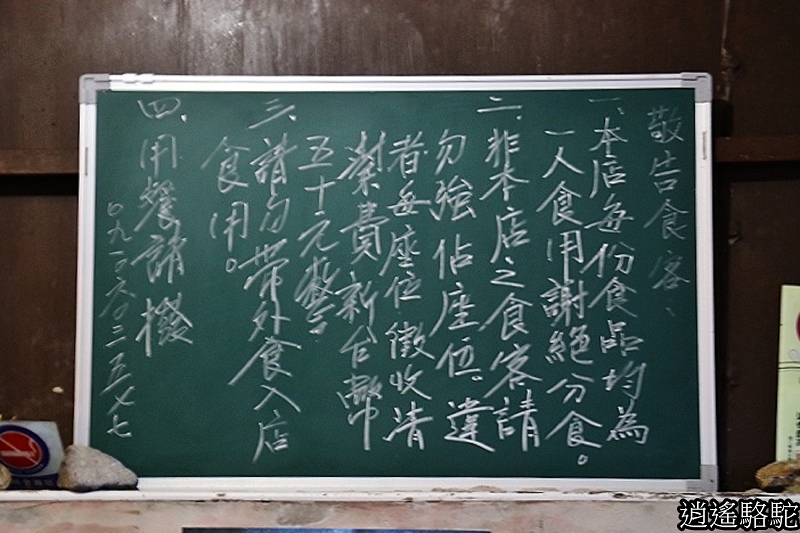 敬告食客：
一、本店每份食品均為
一人食用謝絕分食。
二、非本店之食客請
勿強佔座位。違
者每座位徵收清
潔費新台幣
五十元整。
三、請勿帶外食入店
食用。
四、用餐請撥
逍遙駱駝